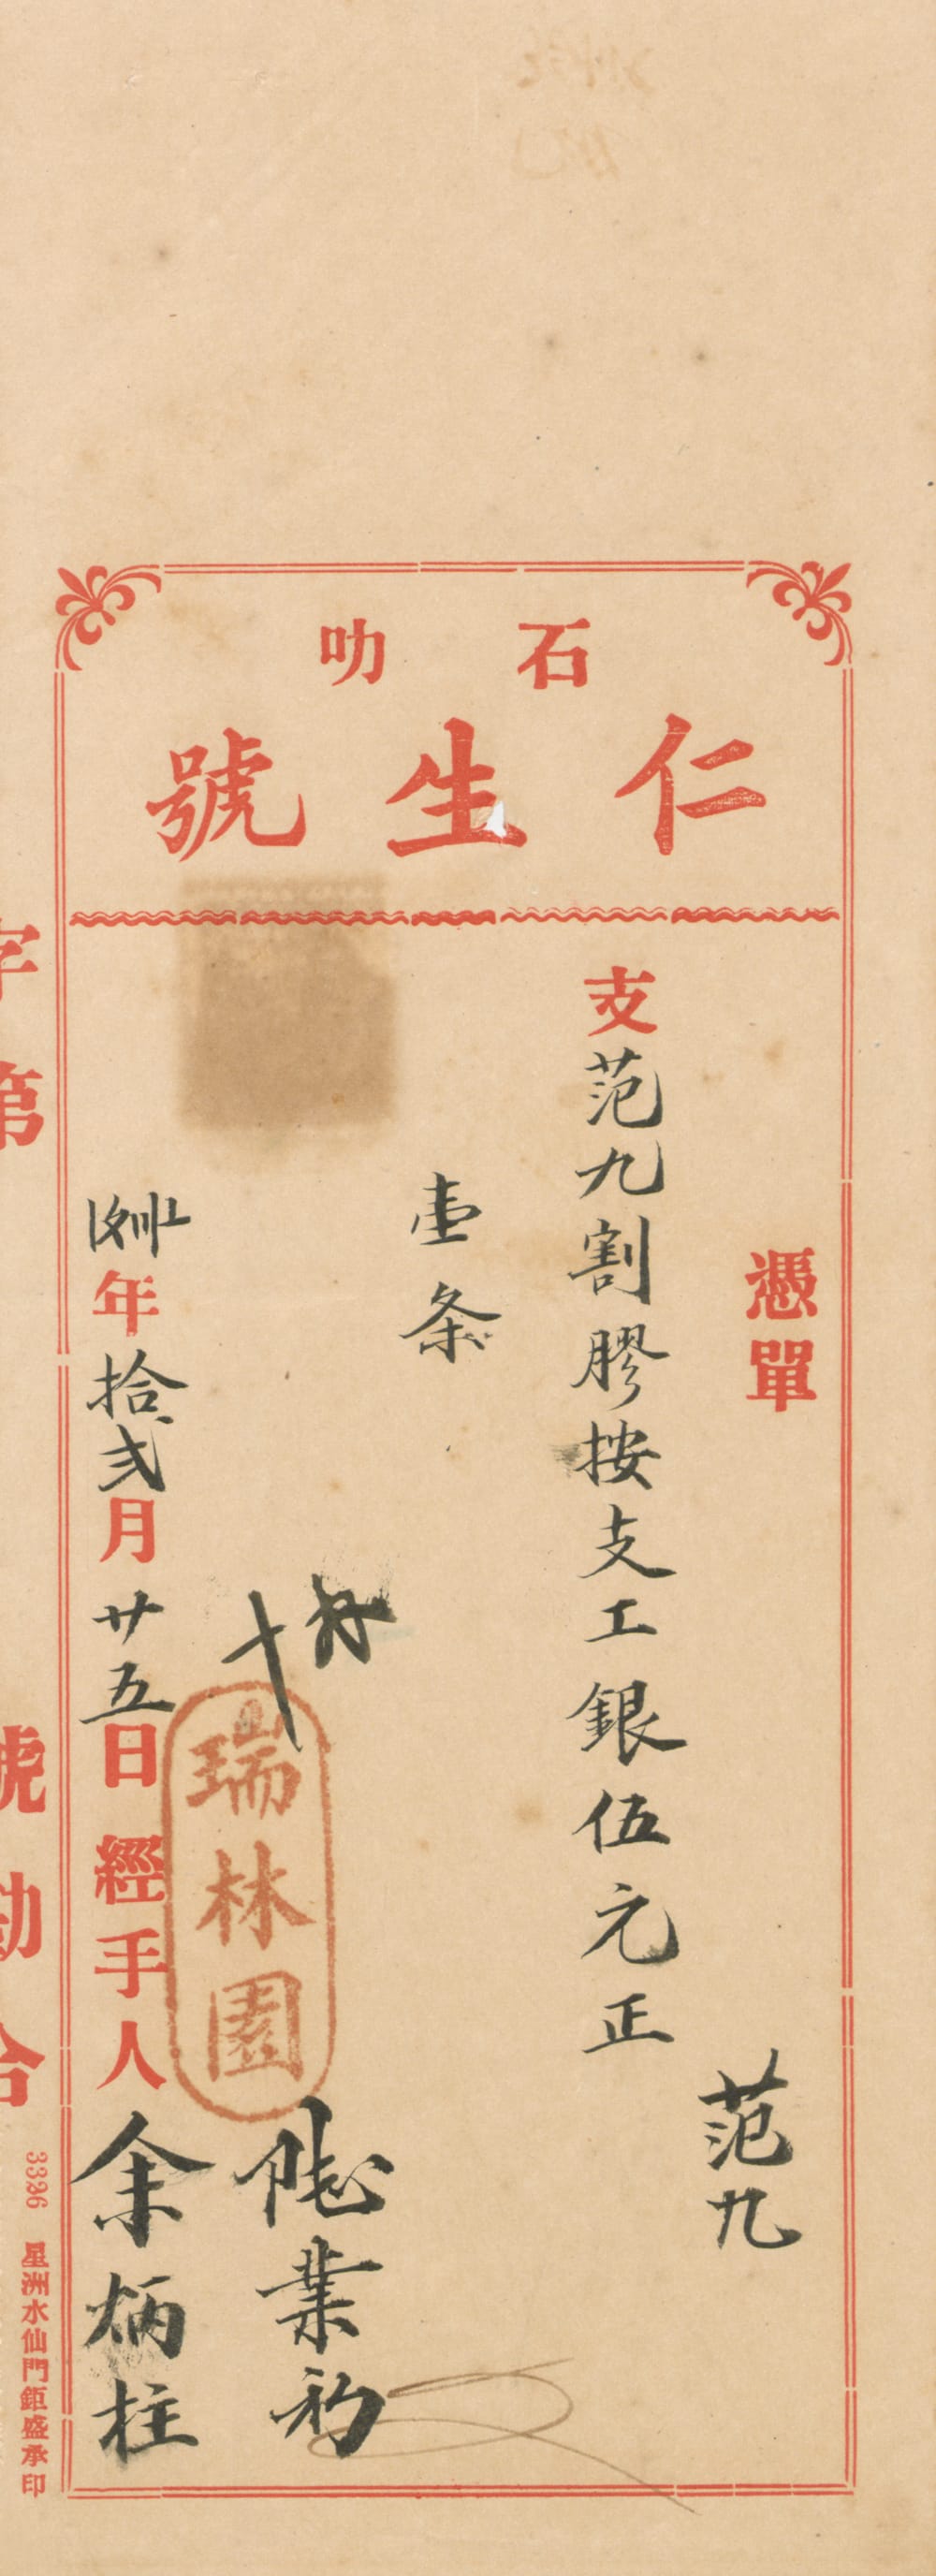 石叻
仁生號
憑單
范九
支范九割膠按支工銀伍元正
壹条
瑞林園
年拾弍月廿五日經手人余炳柱
字第
號勘合
3326 星洲水仙門鉅盛承印